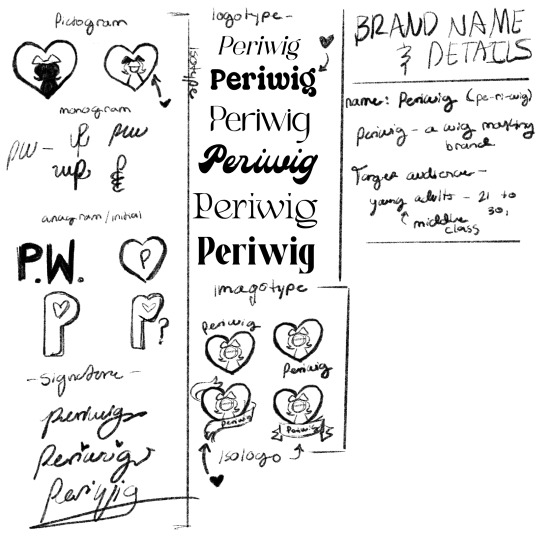 Pictogram
monogram
PW - 
PW
wp
anagram/initial
P.W.
P
P
P?
- Signature -
Periwig
Periwig
Periwig
isotype
logotype -
Periwig
Periwig
Periwig
Periwig
Periwig
Periwig
imagotype
Periwig
Periwig
Periwig
Periwig
Isologo
BRAND NAME
& DETAILS
name: Periwig (pe-ri-wig)
Periwig - a wig making
brand
Target audience -
young adults - 21 to
30,
middle
class